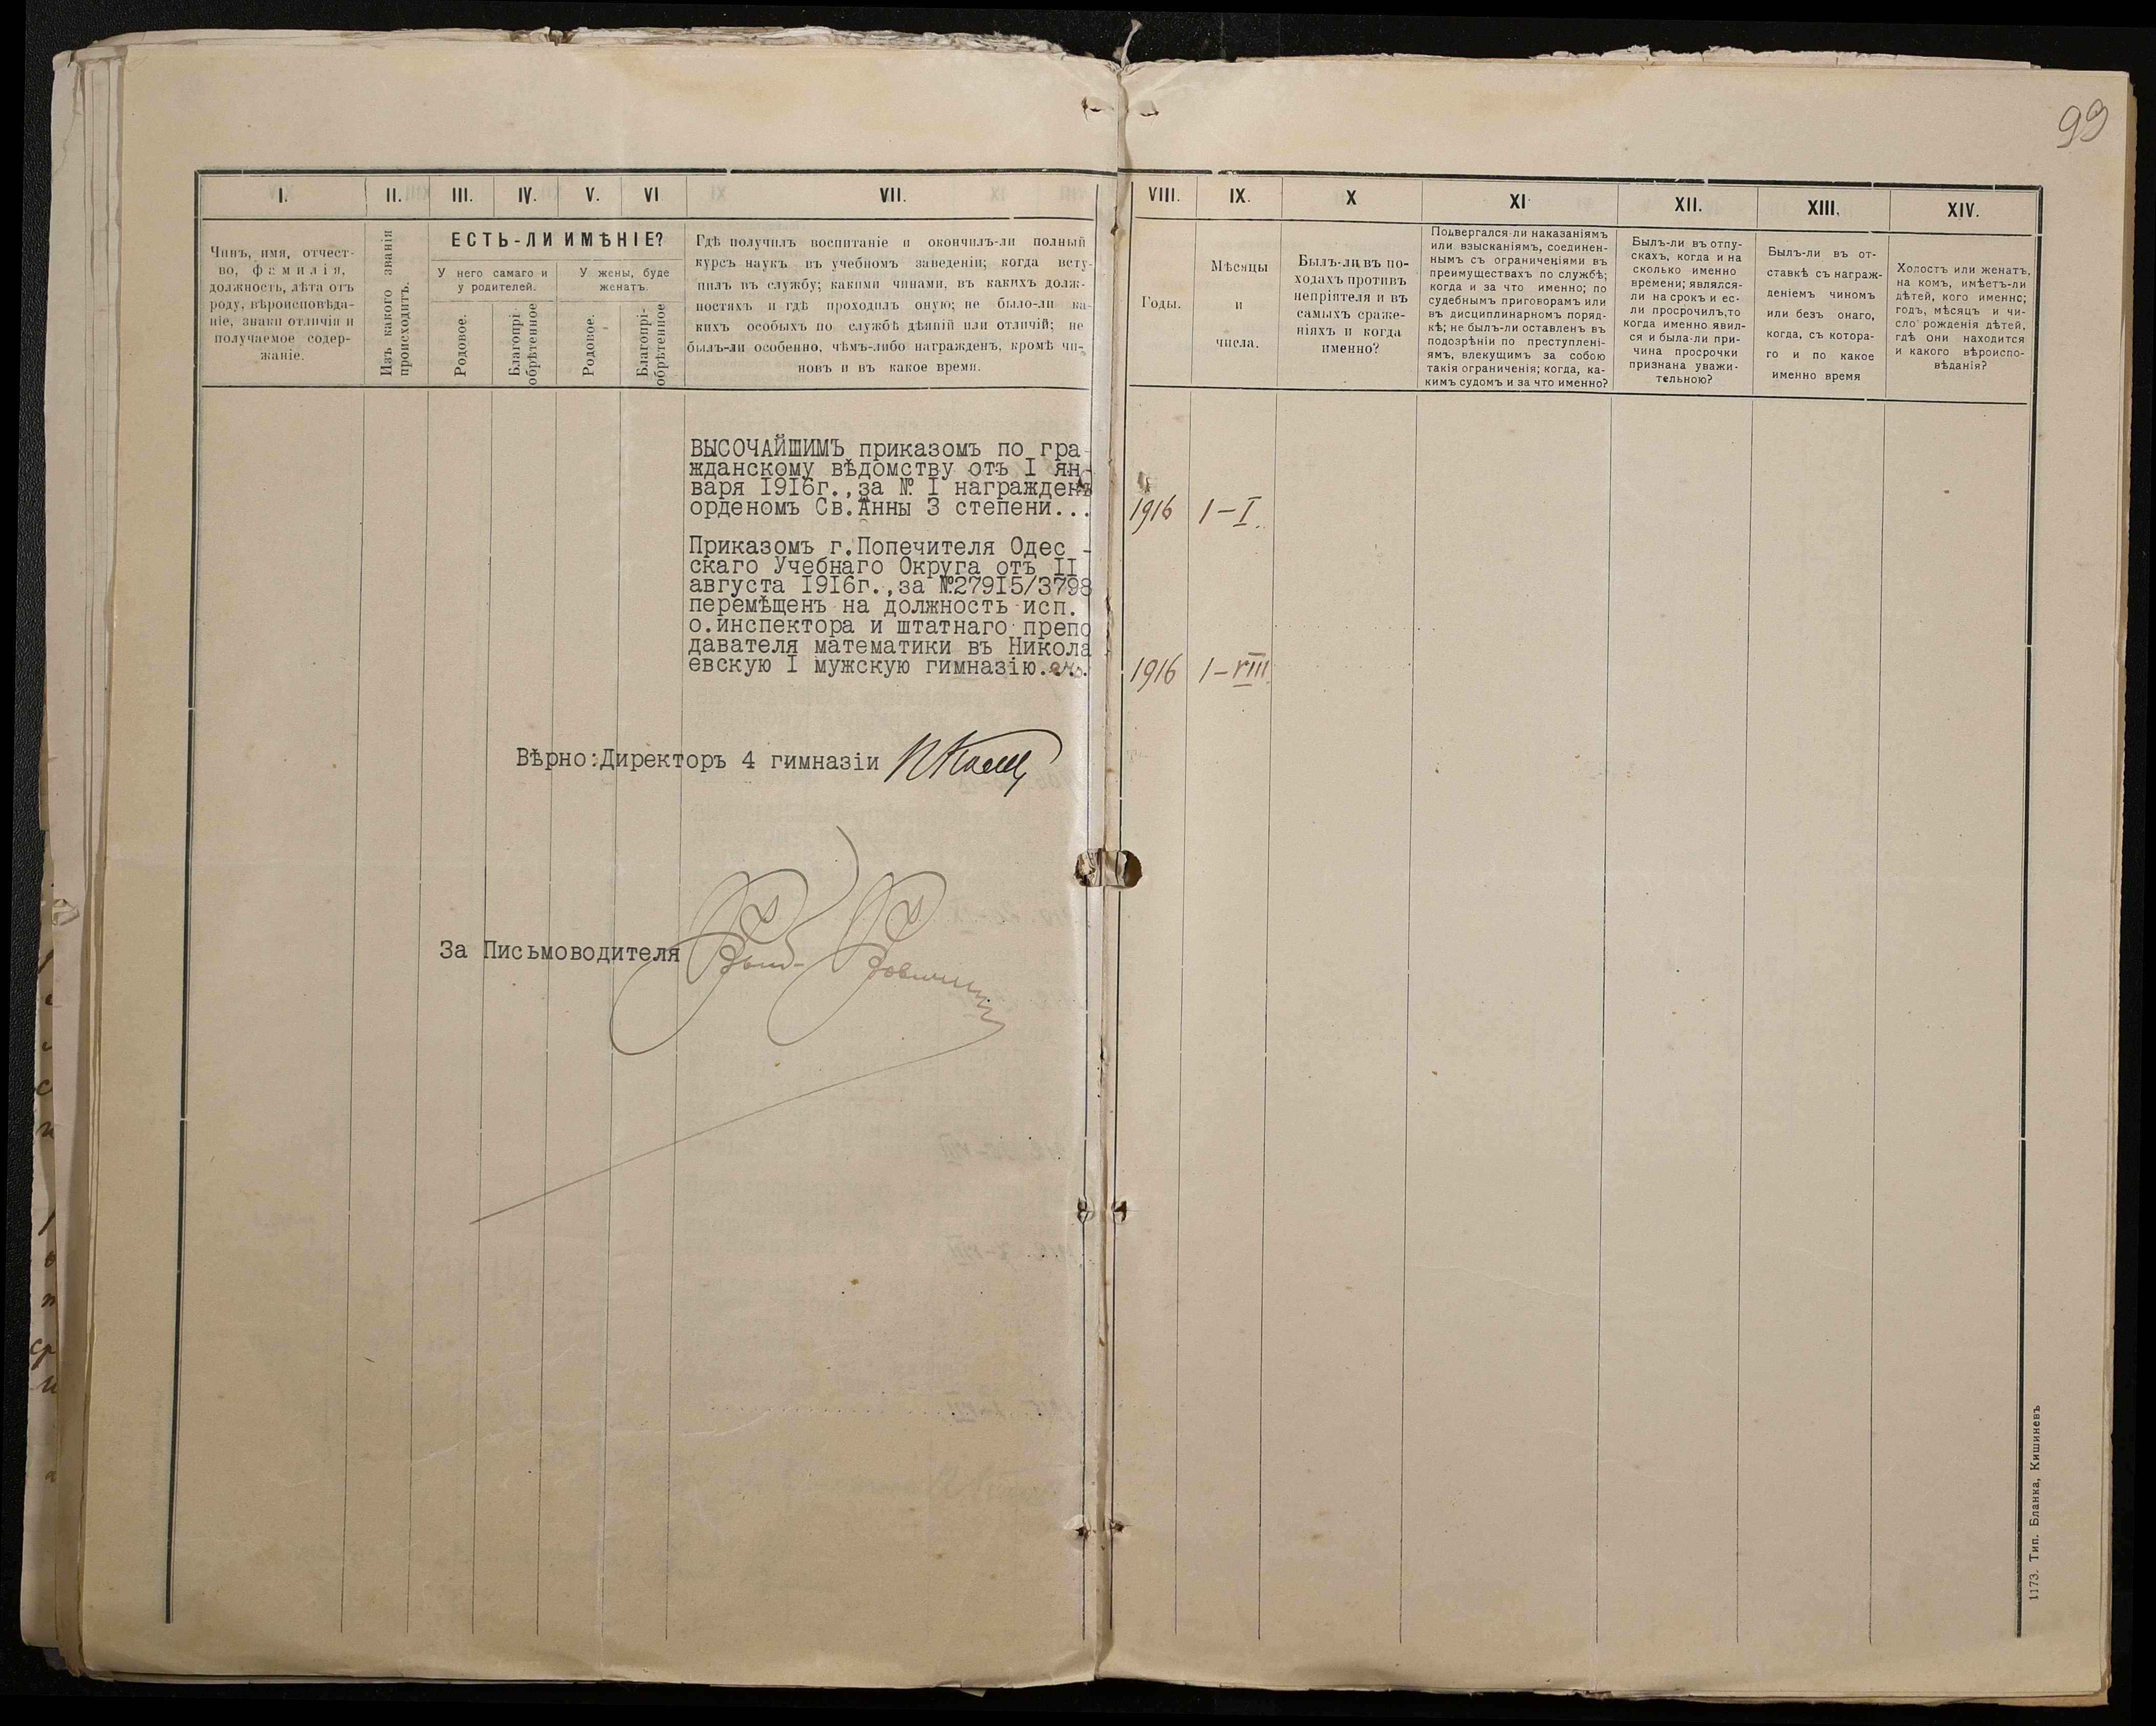 99
I.
II.
III.
IV.
V.
VI
VII.
VIII.
IX.
X
XI
XII.
XIII.
XIV.
Чинъ, имя, отчест-
во, фамилія,
должность, лѣта отъ
роду, вѣроисповѣда-
ніе, знаки отличія и
получаемое содер-
жаніе.
Изъ какого званія
происходитъ.
ЕСТЬ-ЛИ ИМѢНІЕ?
У него самаго и
у родителей.
У жены, буде
женатъ.
Родовое.
Благопрі-
обрѣтенное
Родовое.
Благопрі-
обрѣтенное
Гдѣ получилъ воспитаніе и окончилъ-ли полный
курсъ наукъ въ учебномъ заведеніи; когда всту-
пилъ въ службу; какими чинами, въ какихъ долж-
ностяхъ и гдѣ проходилъ оную; не было-ли ка-
кихъ особыхъ по службѣ дѣяній или отличій; не
былъ-ли особенно, чѣмъ-либо награжденъ, кромѣ чи-
новъ и въ какое время.
Годы.
Мѣсяцы
и
числа.
Былъ-ли въ по-
ходахъ противъ
непріятеля и въ
самыхъ сраже-
ніяхъ и когда
именно?
Подвергался-ли наказаніямъ
или взысканіямъ, соединен-
нымъ съ ограниченіями въ
преимуществахъ по службѣ;
когда и за что именно; по
судебнымъ приговорамъ или
въ дисциплинарномъ поряд-
кѣ; не былъ-ли оставленъ въ
подозрѣніи по преступлені-
ямъ, влекущимъ за собою
такія ограниченія; когда, ка-
кимъ судомъ и за что именно?
Былъ-ли въ отпу-
скахъ, когда и на
сколько именно
времени; являлся-
ли на срокъ и ес-
ли просрочилъ, то
когда именно явил-
ся и была-ли при-
чина просрочки
признана уважи-
тельною?
Былъ-ли въ от-
ставкѣ съ награж-
деніемъ чиномъ
или безъ онаго,
когда, съ котора-
го и по какое
именно время
Холостъ или женатъ,
на комъ, имѣетъ-ли
дѣтей, кого именно;
годъ, мѣсяцъ и чи-
сло рожденія дѣтей,
гдѣ они находится
и какого вѣроиспо-
вѣданія?
ВЫСОЧАЙШИМЪ приказомъ по гра-
жданскому вѣдомству отъ I ян-
варя 1916г.,за № I награжденъ
орденомъ Св.Анны 3 степени...
1916 1–I.
Приказомъ г.Попечителя Одес -
скаго Учебнаго Округа отъ II
августа 1916г.,за №27915/3798
перемѣщенъ на должность исп.
о.инспектора и штатнаго препо
давателя математики въ Никола
евскую I мужскую гимназію...
1916 1–VIII.
Вѣрно:Директоръ 4 гимназіи
За Письмоводителя
1173. Тип. Бланка, Кишиневъ